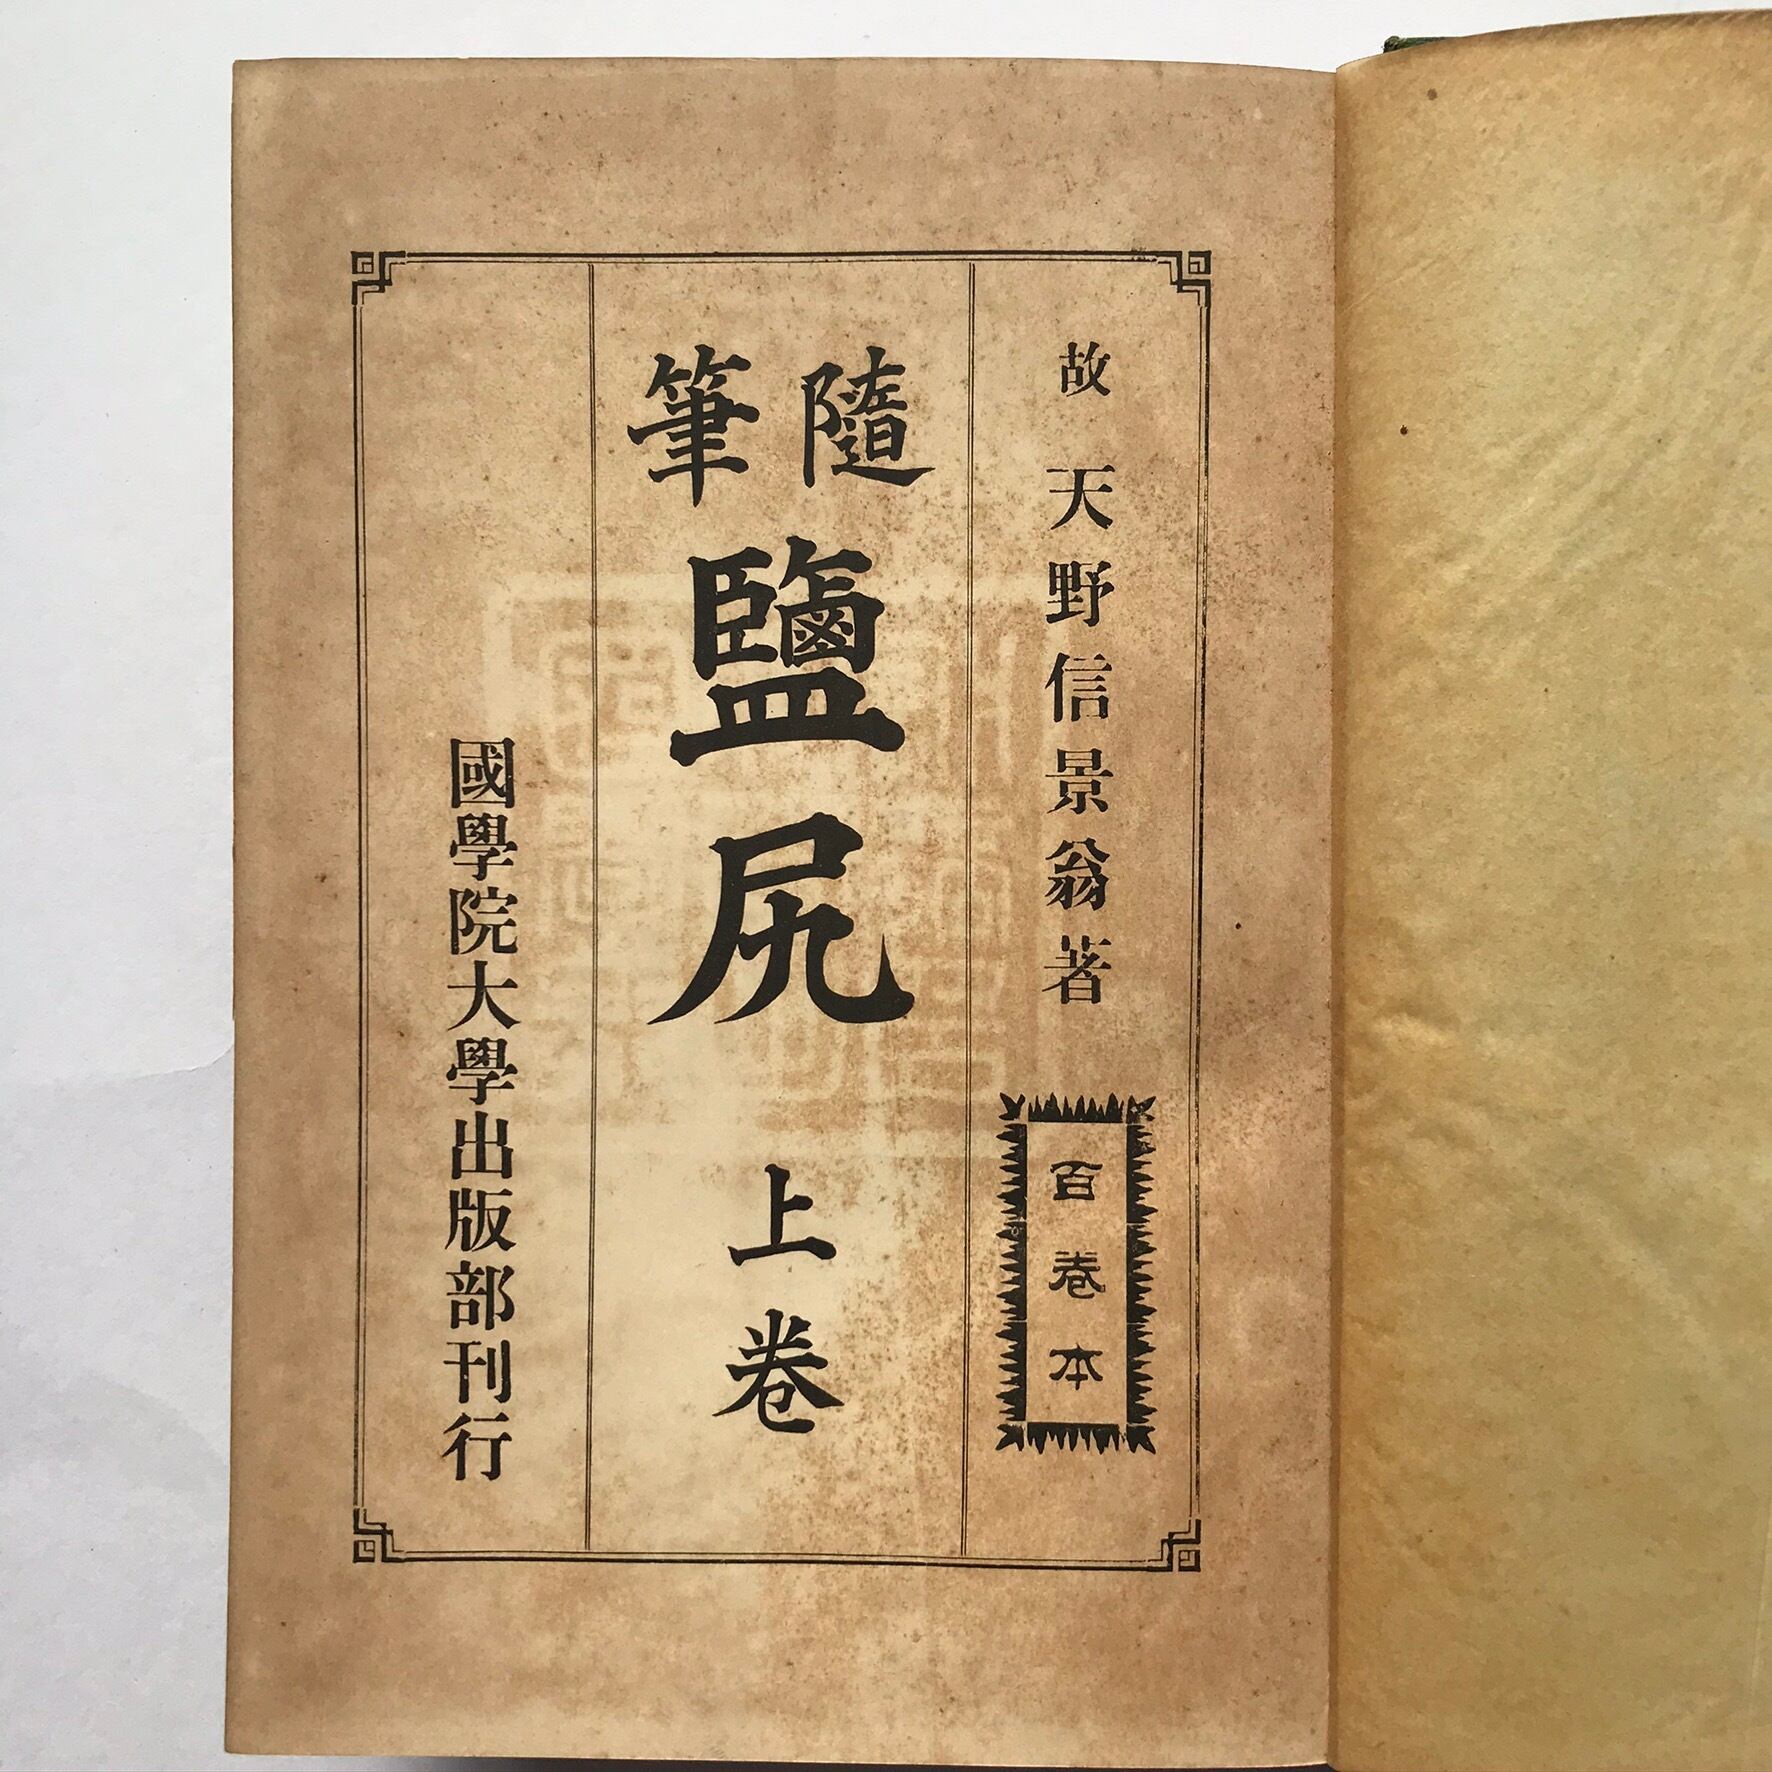 故 天野信景翁著
百卷本
隨筆
鹽尻 上卷
國學院大學出版部刊行